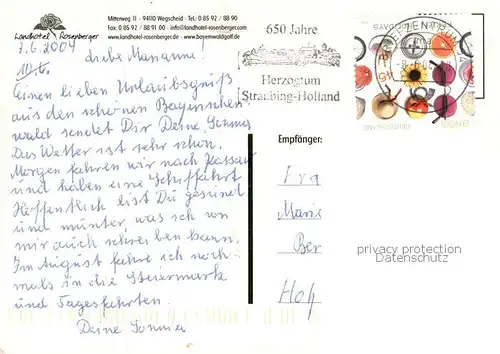 Landhotel Rosenberger
Mitterweg 11 - 94110 Wegscheid - Tel.: 0 85 92 / 88 90
Fax: 0 85 92 / 88 91-00 - info@landhotel-rosenberger.com
www.landhotel-rosenberger.com - www.bayerwaldgolf.de
7.6.2004
Liebe Marianne!
Einen lieben Urlaubsgruß
aus dem schönen Bayerischen
wald sendet Dir Deine
Das Wetter ist sehr schön.
Morgen fahren wir nach Passau
und haben eine Schiffahrt
Hoffentlich bist Du gesund
und munter, was ich von
mir auch schreiben kann.
Im August fahre ich noch-
mals in die Steiermark
und Tagesfahrten.
Deine
650 Jahre
Herzogtum
Straubing-Holland
BRIEFZENTRUM 94
Empfänger:
Fra
Marie
Ber
Hoh
privacy protection
Datenschutz